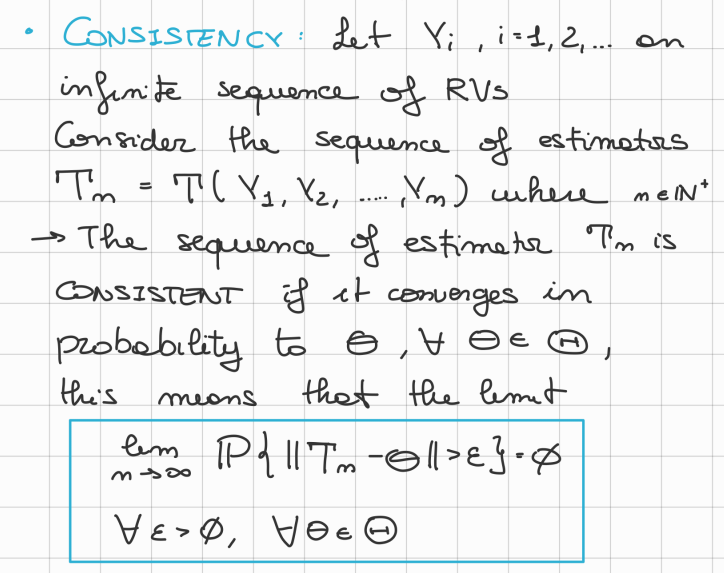 • CONSISTENCY: Let Yi, i=1,2,... an
infinite sequence of RVs
Consider the sequence of estimators
Tn = T(Y1, Y2, ....., Yn) where n∈ℕ⁺
→ The sequence of estimator Tn is
CONSISTENT if it converges in
probability to θ, ∀ θ ∈ Θ,
this means that the limit
lim n→∞ ℙ{||Tn - θ|| > ε} = ∅
∀ ε > ∅, ∀ θ ∈ Θ